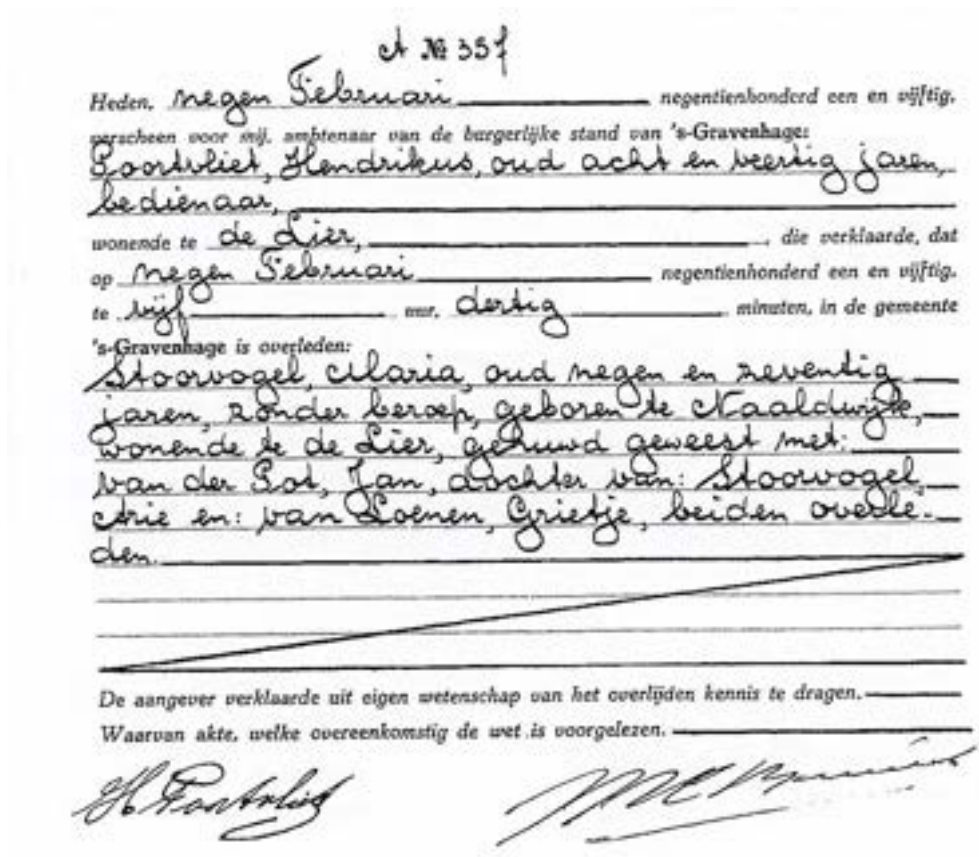 A № 357
Heden, negen Februari negentienhonderd een en vijftig,
verscheen voor mij, ambtenaar van de burgerlijke stand van 's-Gravenhage:
Poortvliet, Hendrikus, oud acht en veertig jaren,
bedienaar,
wonende te de Lier, , die verklaarde, dat
op negen Februari negentienhonderd een en vijftig,
te vijf uur, dertig minuten, in de gemeente
's-Gravenhage is overleden:
Stoorvogel, Maria, oud negen en zeventig
jaren, zonder beroep, geboren te Naaldwijk,
wonende te de Lier, gehuwd geweest met:
van der Pot, Jan, dochter van: Stoorvogel,
Arie en: van Loenen, Grietje, beiden overle-
den.
De aangever verklaarde uit eigen wetenschap van het overlijden kennis te dragen.
Waarvan akte, welke overeenkomstig de wet is voorgelezen.
H. Poortvliet